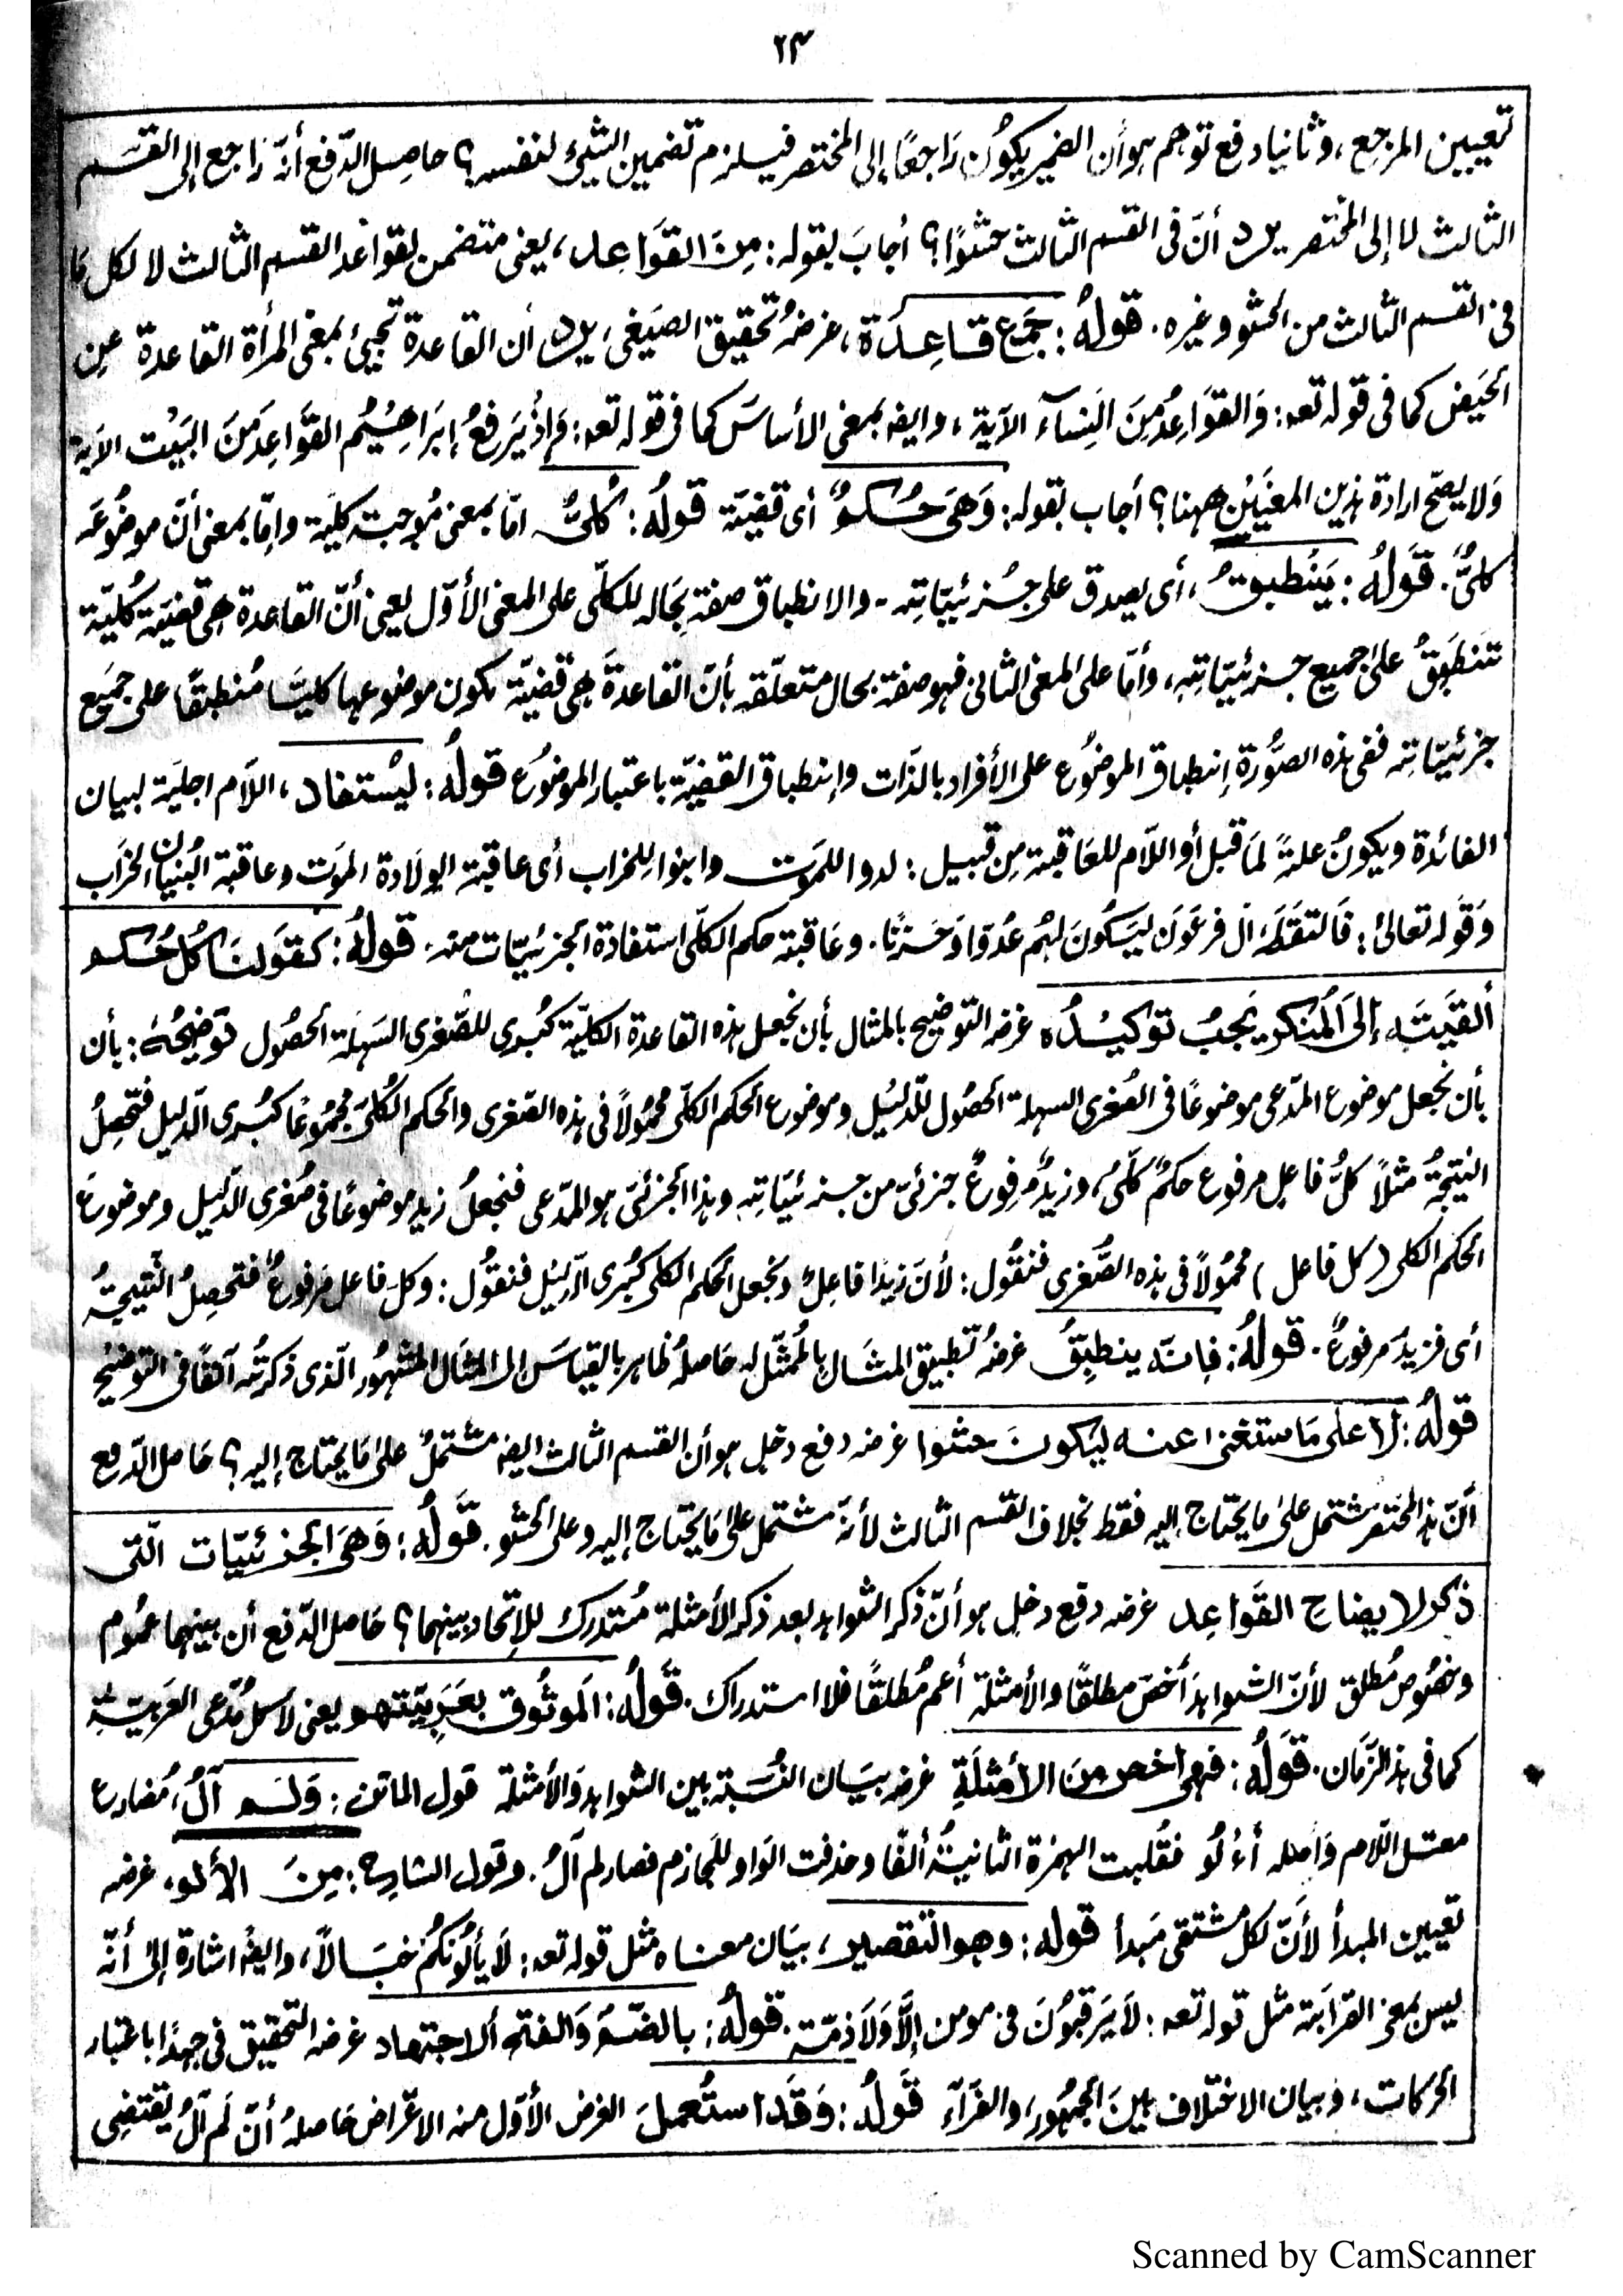 ٢٣
تعيين المرجع، وثانيا دفع توهم هو أن الضمير يكُون رَاجعًا إلى المختصر فيلزم تضمين الشئ لنفسه؟ حاصِل الدّفع أنّه رَاجع إلى القسَم
الثالث لا إلى المختصر يرد أنّ فى القسم الثالث حشوًا؟ أجابَ بقوله: مِنَ القوَاعِد، يعنى متضمن لقواعد القسم الثالث لا لكل مَا
فى القسم الثالث من الحشو وغيره. قولهُ: جَمع قاعِدَة، غرضهُ تحقيق الصيَغى، يرد أن القاعدة تجيئ بمعنى المرأة القاعدة عن
الحَيض كما فى قوله تعه: وَالقوَاعِدُ مِنَ النِسَآء الآية، وايضه بمعنى الأساسَ كما فى قوله تعه: وَإذْ يَرفعُ إبرَاهِيْمُ القوَاعِدَ مِنَ البَيْت الآية
وَلا يصحّ ارادة هذين المعنيَيْن ههنا؟ أجاب بقوله: وَهىَ حُكمٌ أى قضيّة قولُهُ: كُلىٌّ امّا بمعنى مُوجبة كليَة وإمّا بمعنى أنّ موضُوعَه
كلىٌّ. قَولُهُ: يَنْطبقُ، أى يصدق على جُزئيّاتِه. والانطباق صفة بحَاله للكلّى على المعنى الأوّل يعنى أنّ القاعدة هى قضيّة كُليّة
تنطَبِقُ علىٰ جميع جزئيّاتِهِ، وأمّا على المعنى الثانى فهو صفة بحال متعلّقه بأنّ القاعدةَ هى قضيّة يكون موضوعها كليًّا مُنطبقًا على جميَع
جزئيّاتِه ففى هذه الصُّورة إنطباق الموضُوع على الأفراد بالذّات وإنطباق القضيّة باعتبار الموضُوع قولُهُ: ليُستفاد، اللاَم اجليّة لبيان
الفائدة ويكونُ علةً لمَا قبل أو اللاَم للعَاقبة مِن قبيل: لدوا للمَوت وابنوا للخراب أى عاقبة الولَادة الموَت وعاقبة البُنيان الخرَاب
وَقوله تعالىٰ: فَالتقطَهُ آل فرعَون ليَكُونَ لهُم عَدُوّا وَحَزنًا. وعَاقبة حكم الكلّى استفادة الجزئيّات منه. قولُهُ: كقوَلنَا كُل حُكم
ألقيَتَه إلىَ المُنكر يَجبُ توكيْدُه غرضه التوضيح بالمثال بأن نجعل هذه القاعدة الكليّة كبُرى للصُّغرى السَهلَة الحصُول توَضيحُهُ: بأن
بأن نجعل موضوع المدّعى موضوعًا فى الصُغرى السهلة الحصُول للدّليْل وموضوع الحكم الكلّى محمُولاً فى هذه الصّغرى والحكم الكُلىّ مجمُوعًا كبُرى الدّليل فتحصلُ
النتيجَةُ مثلاً كلُّ فاعل مرفوع حكمٌ كلّىٌ، وزيدٌ مرفوعٌ جزئىّ من جزئيّاتِهِ وهذا الجزئىّ هو المدّعى فنجعلُ زيد موضوعًا فى صُغرى الدّليل وموضوعَ
الحكم الكلى (كل فاعل) محمُولاً فى هذه الصُّغرى فنقُول: لأنّ زيدًا فاعِلٌ ونجعل الحكم الكلى كبُرى الدّليْل فنقُول: وكلّ فاعل مَرفوعٌ فتحصلُ النتيجَةُ
أى فزيدٌ مرفوعٌ. قولُهُ: فانّه ينطبِقُ غرضُهُ تطبيق المثَال بالمُمثّل له حَاصلهُ ظاهر بالقياسَ الى المثال المشهُور الّذى ذكرتُه آنفًا فى التوضيْح
قولُهُ: لا على مَا ستغنى عنه ليَكونَ حشوا غرضه دفع دخل هو أن القسم الثالث ايضه مشتملٌ علىٰ مَا يحتاج إليه؟ حَاصل الدّفع
أنّ هذا المختصَر مشتمل علىٰ ما يحتاج إليه فقط بخلاف القسم الثالث لأنهّ مشتمل علىٰ مَا يحتاج إليه وعلى الحشو. قَولُهُ: وَهىَ الجزئيّات الّتى
ذكر لايضاح القوَاعِد غرضه دفع دخل هو أنّ ذكر الشواهد بعد ذكر الأمثلة مُستدرك للإتحاد بينهما؟ حَاصل الدّفع أن بينهما عمُوم
وخصُوص مُطلق لأنّ الشواهدَ أخصّ مطلقًا والأمثلة أعم مُطلقًا فلا استدراك. قَولُهُ: المَوثُوق بعَرَبيّتهم يعنى لا كل مُدّعى العَرَبيّة
كما فى هذا الزّمَان. قَولُهُ: فهى اخص مِنَ الأمثلَةِ غرضه بيَان النسَبة بين الشواهد وَالأمثلة قول الماتن: وَلَم آلُ، مُضارع
معتل اللام وَأصله أءْلُوُ فقُلبت الهمزة الثانيَةُ ألفًا وحذفت الوَاو للجَازم فصار لم آلُ. وقول الشارح: مِنَ الألو، غرضه
تعيين المبدأ لأَنّ لكل مشتقٍ مَبدأ قوله: وهو التقصير، بيَان معناه مثل قوله تعه: لَا يألُونكُم خبَالاً، وايضهُ اشارة إلى أنّه
ليس بمعنى القرَابَة مثل قوله تعه: لَا يَرقبُونَ فى مومن إلاًّ وَلَا ذِمّة. قولُهُ: بالضّمّ وَالفتح ألاجتهاد غرضه التحقيق فى جهدًا باعتبار
الحركات، وبيان الاختلاف بينَ الجمهُور، والفرّآء قَولُهُ: وَقَد استُعملَ الغرض الأوّل منه الاعتراض حَاصلهُ أنّ لَم آلُ يقتضِى
Scanned by CamScanner